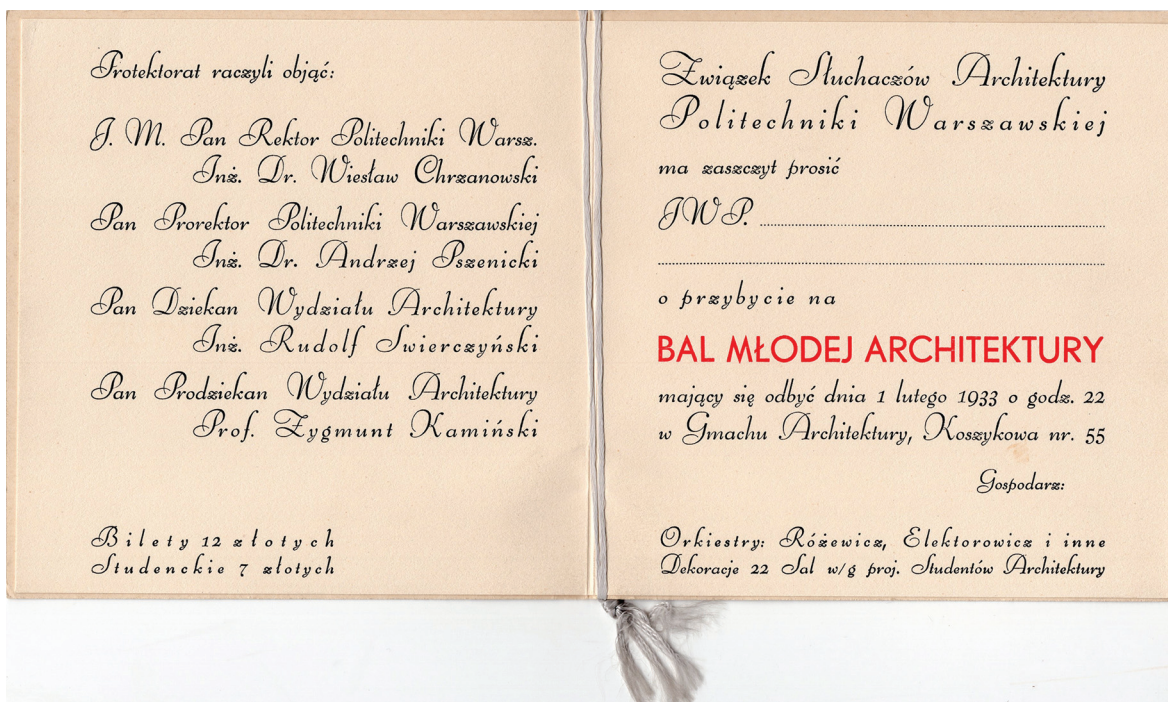 Protektorat raczyli objąć:
J. M. Pan Rektor Politechniki Warsz.
Inż. Dr. Wiesław Chrzanowski
Pan Prorektor Politechniki Warszawskiej
Inż. Dr. Andrzej Pszenicki
Pan Dziekan Wydziału Architektury
Inż. Rudolf Swierczyński
Pan Prodziekan Wydziału Architektury
Prof. Zygmunt Kamiński
Bilety 12 złotych
Studenckie 7 złotych
Związek Słuchaczów Architektury
Politechniki Warszawskiej
ma zaszczyt prosić
JWP.
o przybycie na
BAL MŁODEJ ARCHITEKTURY
mający się odbyć dnia 1 lutego 1933 o godz. 22
w Gmachu Architektury, Koszykowa nr. 55
Gospodarz:
Orkiestry: Różewicz, Elektorowicz i inne
Dekoracje 22 Sal w/g proj. Studentów Architektury